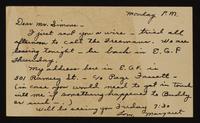 Monday P.M.
Dear Mr. Simon -
I just sent you a wire - tried all
afternoon to call the Freemans. We are
leaving tonight - be back in E.G.F
Thursday.
My address here in E.G.F. is
501 Ramsey St. - c/o Page Fawcett -
(in case you would need to get in touch
with me if something happened to Buddy
or such - .)
Will be seeing you Friday 7:30
Love, Margaret